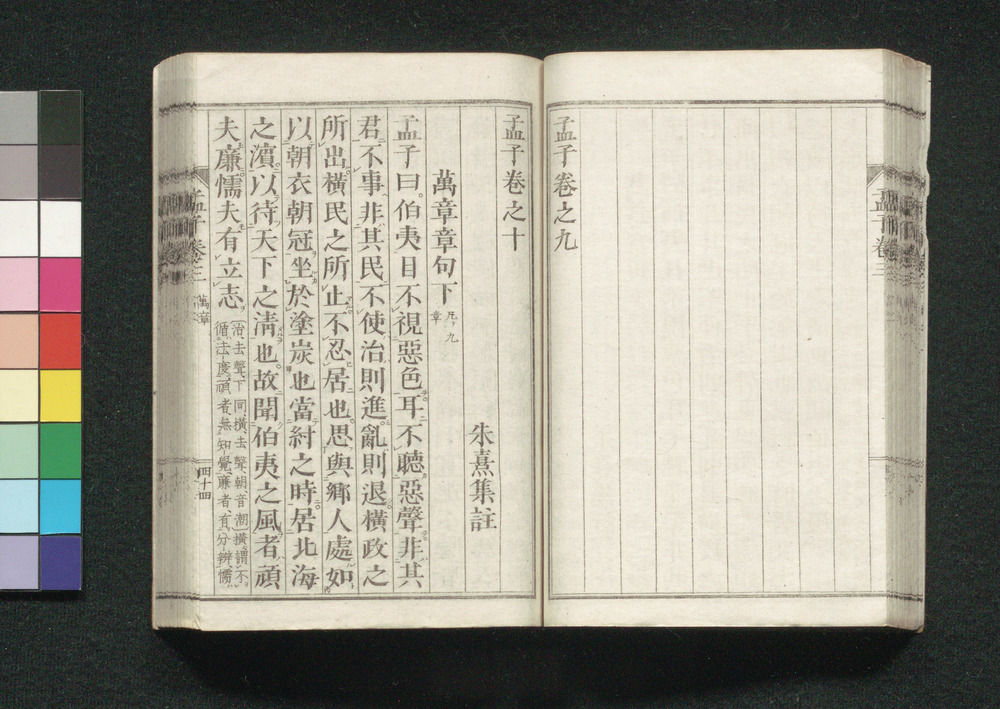 孟子卷之九
孟子卷三
孟子卷之十
朱熹集註
萬章章句下 凡九章
孟子曰伯夷目不視惡色耳不聽惡聲非其
君不事非其民不使治則進亂則退橫政之
所出橫民之所止不忍居也思與鄉人處如
以朝衣朝冠坐於塗炭也當紂之時居北海
之濱以待天下之清也故聞伯夷之風者頑
夫廉懦夫有立志
治去聲下同橫去聲朝音潮橫謂不
循法度頑者無知覺廉者有分辨懦
孟子卷三
萬章
四十四